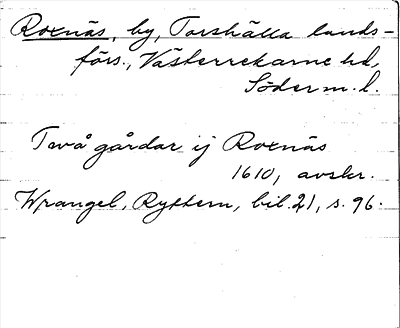 Roxnäs, by, Torshälla lands-
förs., Västerrekarne hd,
Söderm. l.
Två gårdar ij Roxnäs
1610, avskr.
Wrangel, Ryttern, bil. 21, s. 96.